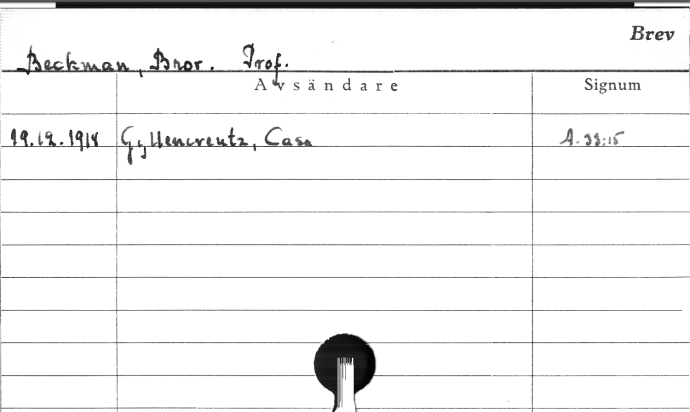 Brev
Beckman, Bror. Prof.
Avsändare Signum
19.12.1918 Gyllencreutz, Casa A.33:15